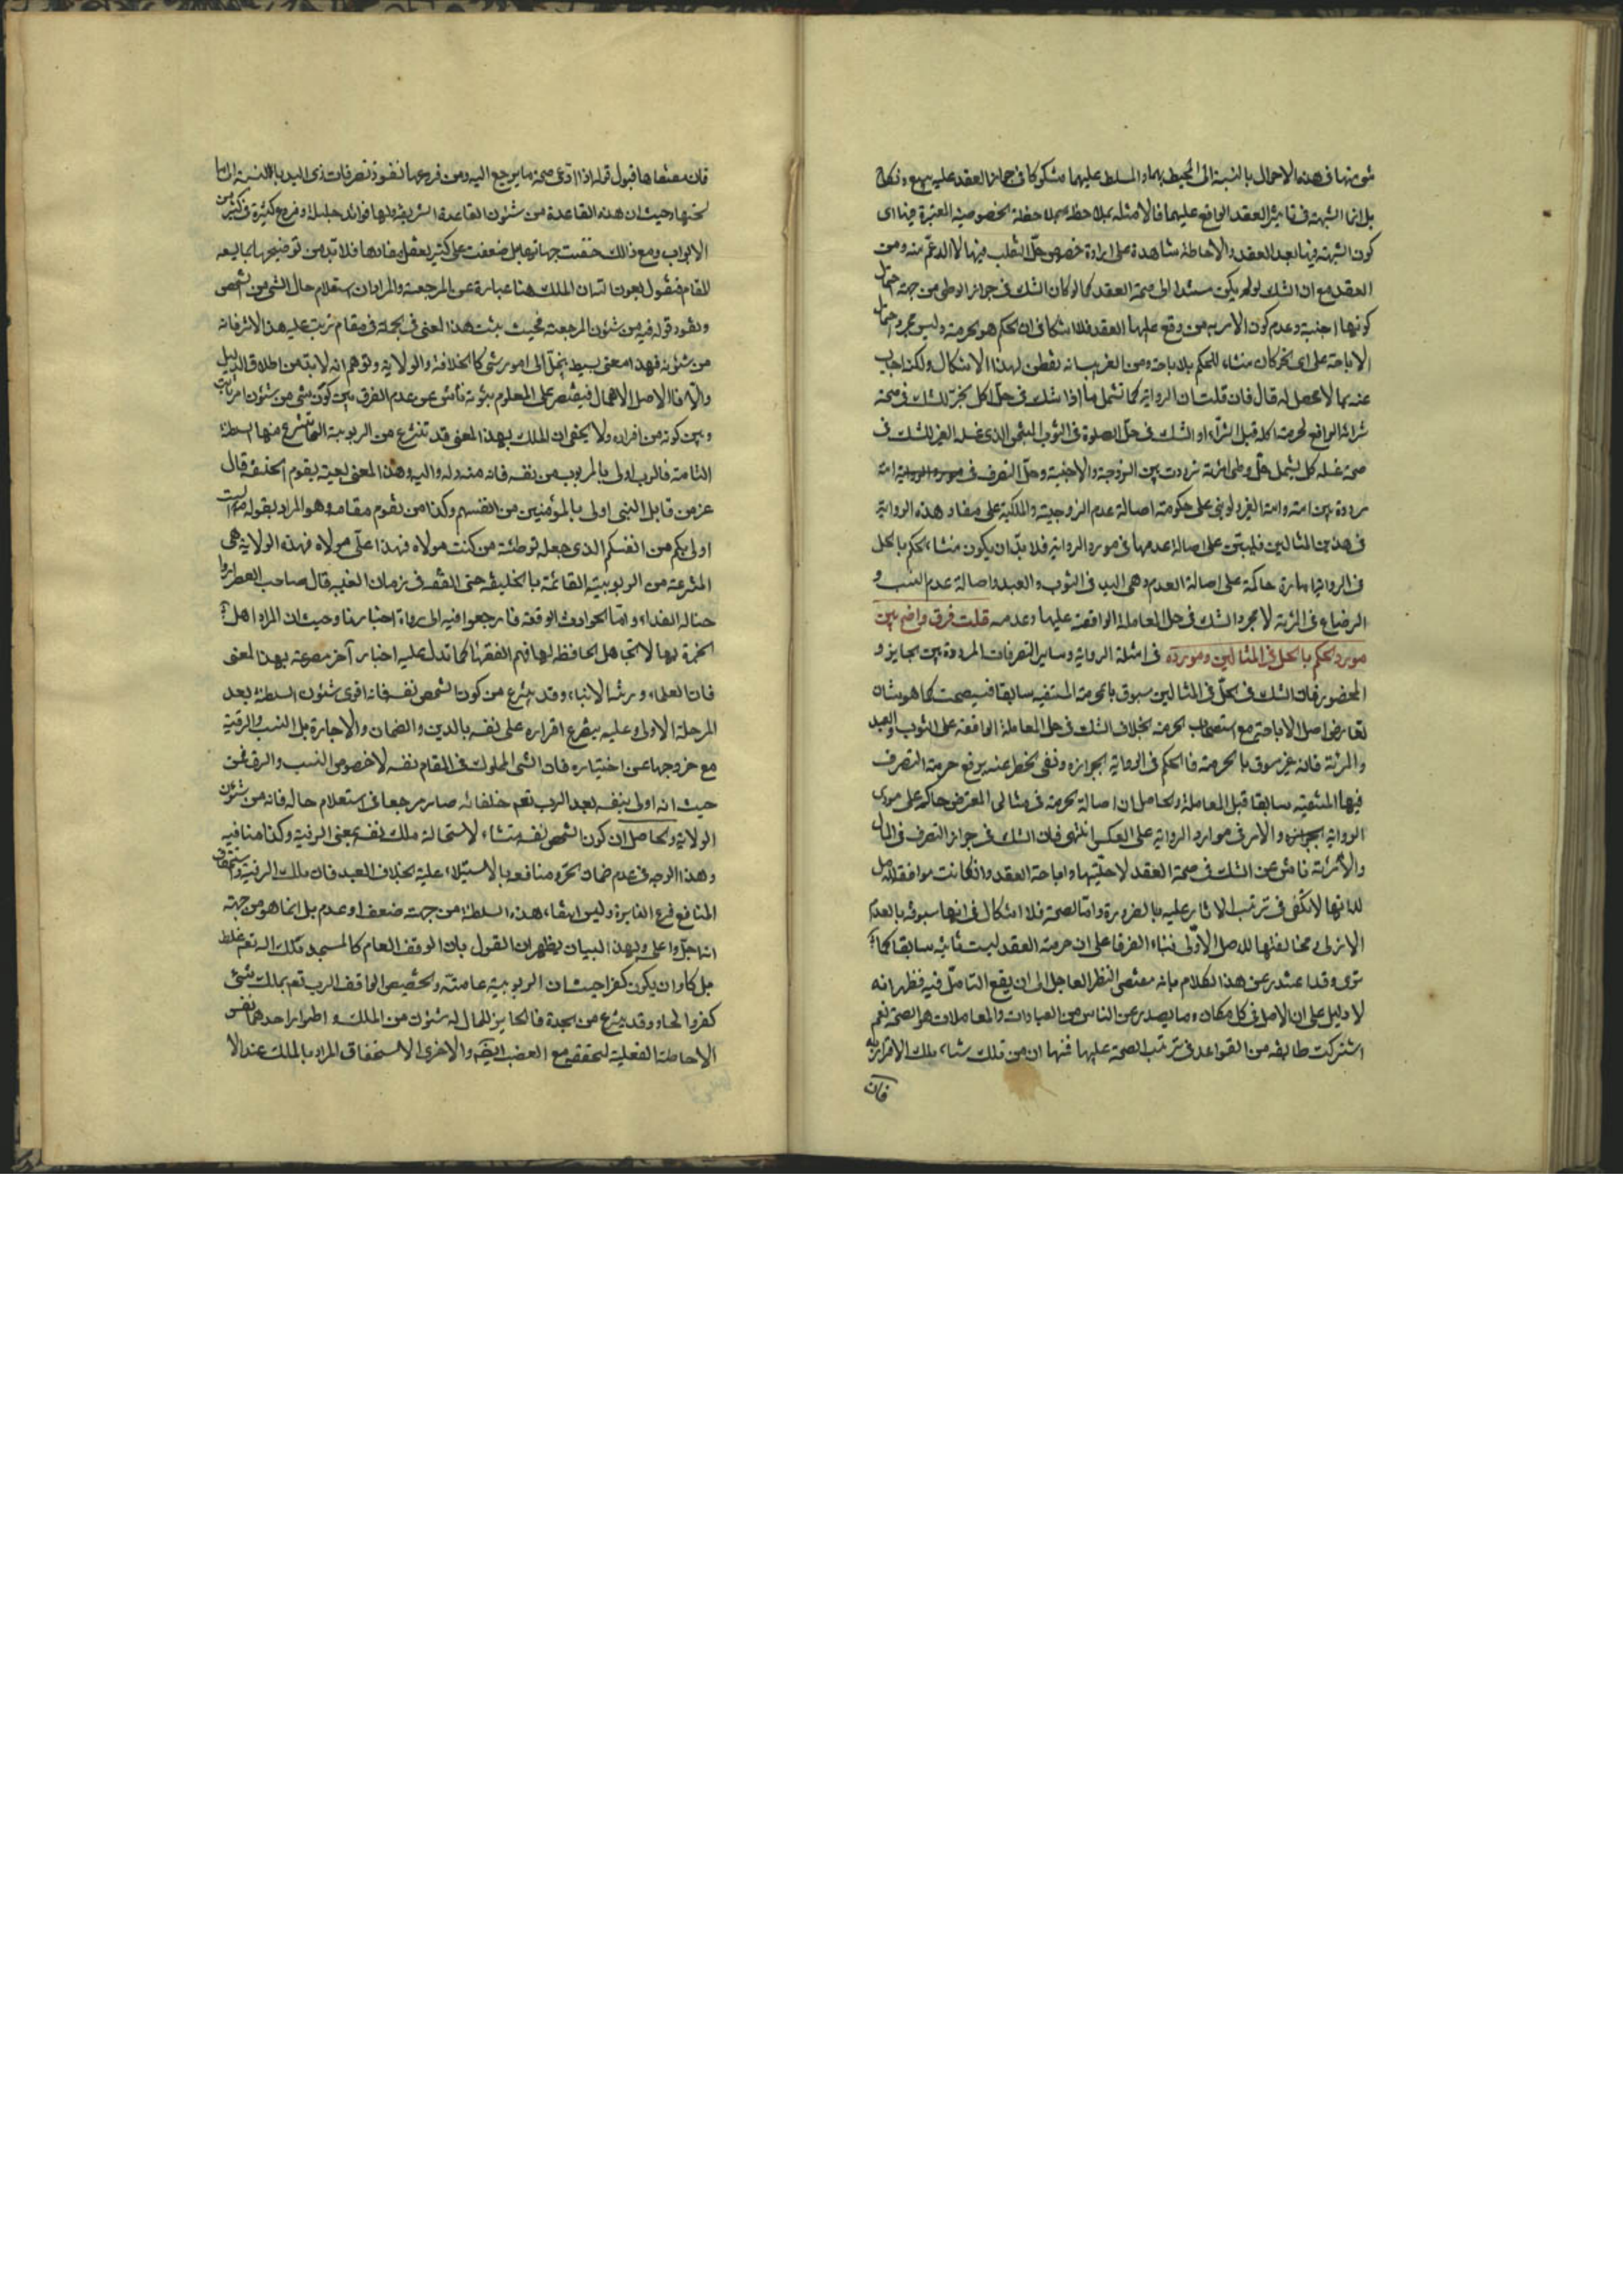 شئ منها فى هذه الاحوال بالنسبة الى المحيط بهما والمسلط عليهما مشكوكا فى جواز العقد عليه ببيع ونكاح
بل انما الشبهة فى تاثير العقد الواقع عليهما فالامثلة بملاحظة الخصوصية المعتبرة فيها اى
كون الشبهة فيها بعد العقد والاحاطة شاهدة على ارادة خصوص حل التقلب فيها لا الاعم منه ومن
العقد مع ان الشك لو لم يكن مستندا الى صحة العقد كما لو كان الشك فى جواز الوطى من جهة احتمال
كونها اجنبية وعدم كون الامر به من وقع عليها العقد فلا اشكال فى ان الحكم هو الحرمة وليس مجرد احتمال
الاباحة على اى نحو كان منشاء للحكم بالاباحة ومن الغريب انه تفطن لهذا الاشكال ولكنه اجاب
عنه بما لا محصل له قال فان قلت ان الرواية كما تشمل ما اذا شك فى حل اكل الخبز للشك فى صحة
شرائه الرافع لحرمة اكله قبل الشراء او الشك فى حل الصلوة فى الثوب النجس الذى غسله الغير للشك فى
صحة غسله كك يشمل حل وطى امرئة ترددت بين الزوجة والاجنبية وحل التصرف فى امة
مرددة بين امته وامة الغير لو بنى على حكومة اصالة عدم الزوجية والملكية على مفاد هذه الرواية
فى هذين المثالين فليبتن على اصالة عدمها فى مورد الرواية فلا بد ان يكون منشاء الحكم بالحل
فى الرواية امارة حاكمة على اصالة العدم وهى اليد فى الثوب والعبد واصالة عدم النسب و
الرضاع فى المرئة لا مجرد الشك فى حل المعاملة الواقعة عليها وعدمه قلت فرق واضح بين
مورد الحكم بالحل فى المثالين ومورده فى امثلة الرواية وساير التصرفات المرددة بين الجايز و
المحضور فان الشك فى الحل فى المثالين مسبوق بالحرمة المتيقنة سابقا فيستصحب كما هو شان
تعارض اصل الاباحة مع استصحاب الحرمة بخلاف الشك فى حل المعاملة الواقعة على الثوب والعبد
والمرئة فانه غير مسبوق بالحرمة فالحكم فى الرواية بجوازه ونفى الخطر عنه يرفع حرمة التصرف
فيها المتيقنة سابقا قبل المعاملة والحاصل ان اصالة الحرمة فى مثالى المعترض حاكمة على مورد
الرواية والامر فى موارد الرواية على العكس انتهى فان الشك فى جواز التصرف فى المال
والامرئة ناش عن الشك فى صحة العقد لا حليتها واباحة العقد وان كانت موافقة للاصل
لكنها لا تكفى فى ترتب الاثار عليه بالضرورة واما الصحة فلا اشكال فى انها مسبوقة بالعدم
الازلى ومخالفتها للاصل الاولى فبناء الفرق على ان حرمة العقد ليست ثابتة سابقا كما
ترى وقد اعتذر عن هذا الكلام بانه مقتضى النظر العاجل الى ان يقع التامل فيه فظهر انه
لا دليل على ان الاصل فى كل مكان وما يصدر عن الناس من العبادات والمعاملات هو الصحة نعم
اشتركت طائفة من القواعد فى ترتب الصحة عليها فمنها ان من ملك شياء ملك الاقرار به
فان
فان مقتضاها قبول قوله اذا ادعى صحة ما يرجع اليه ومن فروعها نفوذ تصرفات ذى اليد بالنسبة الى ما
تحتها وحيث ان هذه القاعدة من شئون القاعدة الشريفة ولها فوائد جليلة وفروع كثيرة فى كثير من
الابواب ومع ذالك خفيت جهاتها بل ضعفت على كثير بعقل مفادها فلا بد من توضيحها بما يسعه
المقام فنقول بعون الله ان الملك هنا عبارة عن المرجعية والمراد ان استعلام حال الشئ من الشخص
ونفوذ قوله فيه من شئون المرجعية فحيث يثبت هذا المعنى فى الجملة فى مقام ترتب عليه هذا الاثر فانه
من شئونه فهذا معنى بسيط ينحل الى امور شتى كالخلافة والولاية وتوهم انه لا بد من اطلاق الدليل
والا فالاصل الاهمال فيقتصر على المعلوم ثبوته ناش عن عدم الفرق بين كون شئ من شئون امر ثابت
وبين كونه من افراده ولا يخفى ان الملك بهذا المعنى قد تنتزع من الربوبية التى تنتزع منها السلطنة
التامة فالرب اولى بالمربوب من نفسه فانه منه وله واليه وهذا المعنى بعينه يقوم الخليفة قال
عز من قايل النبى اولى بالمؤمنين من انفسهم وكذا من يقوم مقامه وهو المراد بقوله ص الست
اولى بكم من انفسكم الذى جعله توطئة من كنت مولاه فهذا على مولاه فهذه الولاية هى
المنتزعة من الربوبية القائمة بالخليفة حتى الفقيه فى زمان الغيبة قال صاحب العصر ارواحنا
له الفداء واما الحوادث الواقعة فارجعوا فيه الى رواة احاديثنا وحيث ان المراد اهل
الخبرة بها لا الجاهل الحافظ لها فهم الفقهاء كما تدل عليه اخبار آخر مصرحة بهذا المعنى
فان العلماء ورثة الانبياء وقد ينتزع من كون الشخص نفسه فانه اقوى شئون السلطنة بعد
المرحلة الاولى وعليه يتفرع اقراره على نفسه بالدين والضمان والاجارة بل النسب والرقية
مع خروجها عن اختياره فان الشئ المملوك فى المقام نفسه لا خصوص النسب والرق فمن
حيث انه اولى بنفسه بعد الرب تعم خلفائه صار مرجعا فى استعلام حاله فانه من شئون
الولاية والحاصل ان كون الشخص نفسه منشاء لاستحالة ملك نفسه بمعنى الرقية وكذا منافيه
وهذا الوجه فى عدم ضمان الحر ومنافعه بالاستيلاء عليه بخلاف العبد فان ملك الرقبة واستحقاق
المنافع فرع المغايرة وليس انتفاء هذه السلطنة من جهة ضعف او عدم بل انما هو من جهة
انها اجل واعلى وبهذا البيان يظهر ان القول بان الوقف العام كالمسجد ملك لله تعم غلط
بل كاد ان يكون كفرا حيث ان الربوبية عامة وتخصيص الواقف الرب تعم بملك شئ
كفر والحاد وقد ينتزع من الجدة فالحايز للمال له شئون من الملك واطوار احدهما نفس
الاحاطة الفعلية لتحققه مع الغصب ايضا والاخرى الاستحقاق المراد بالملك عند الا